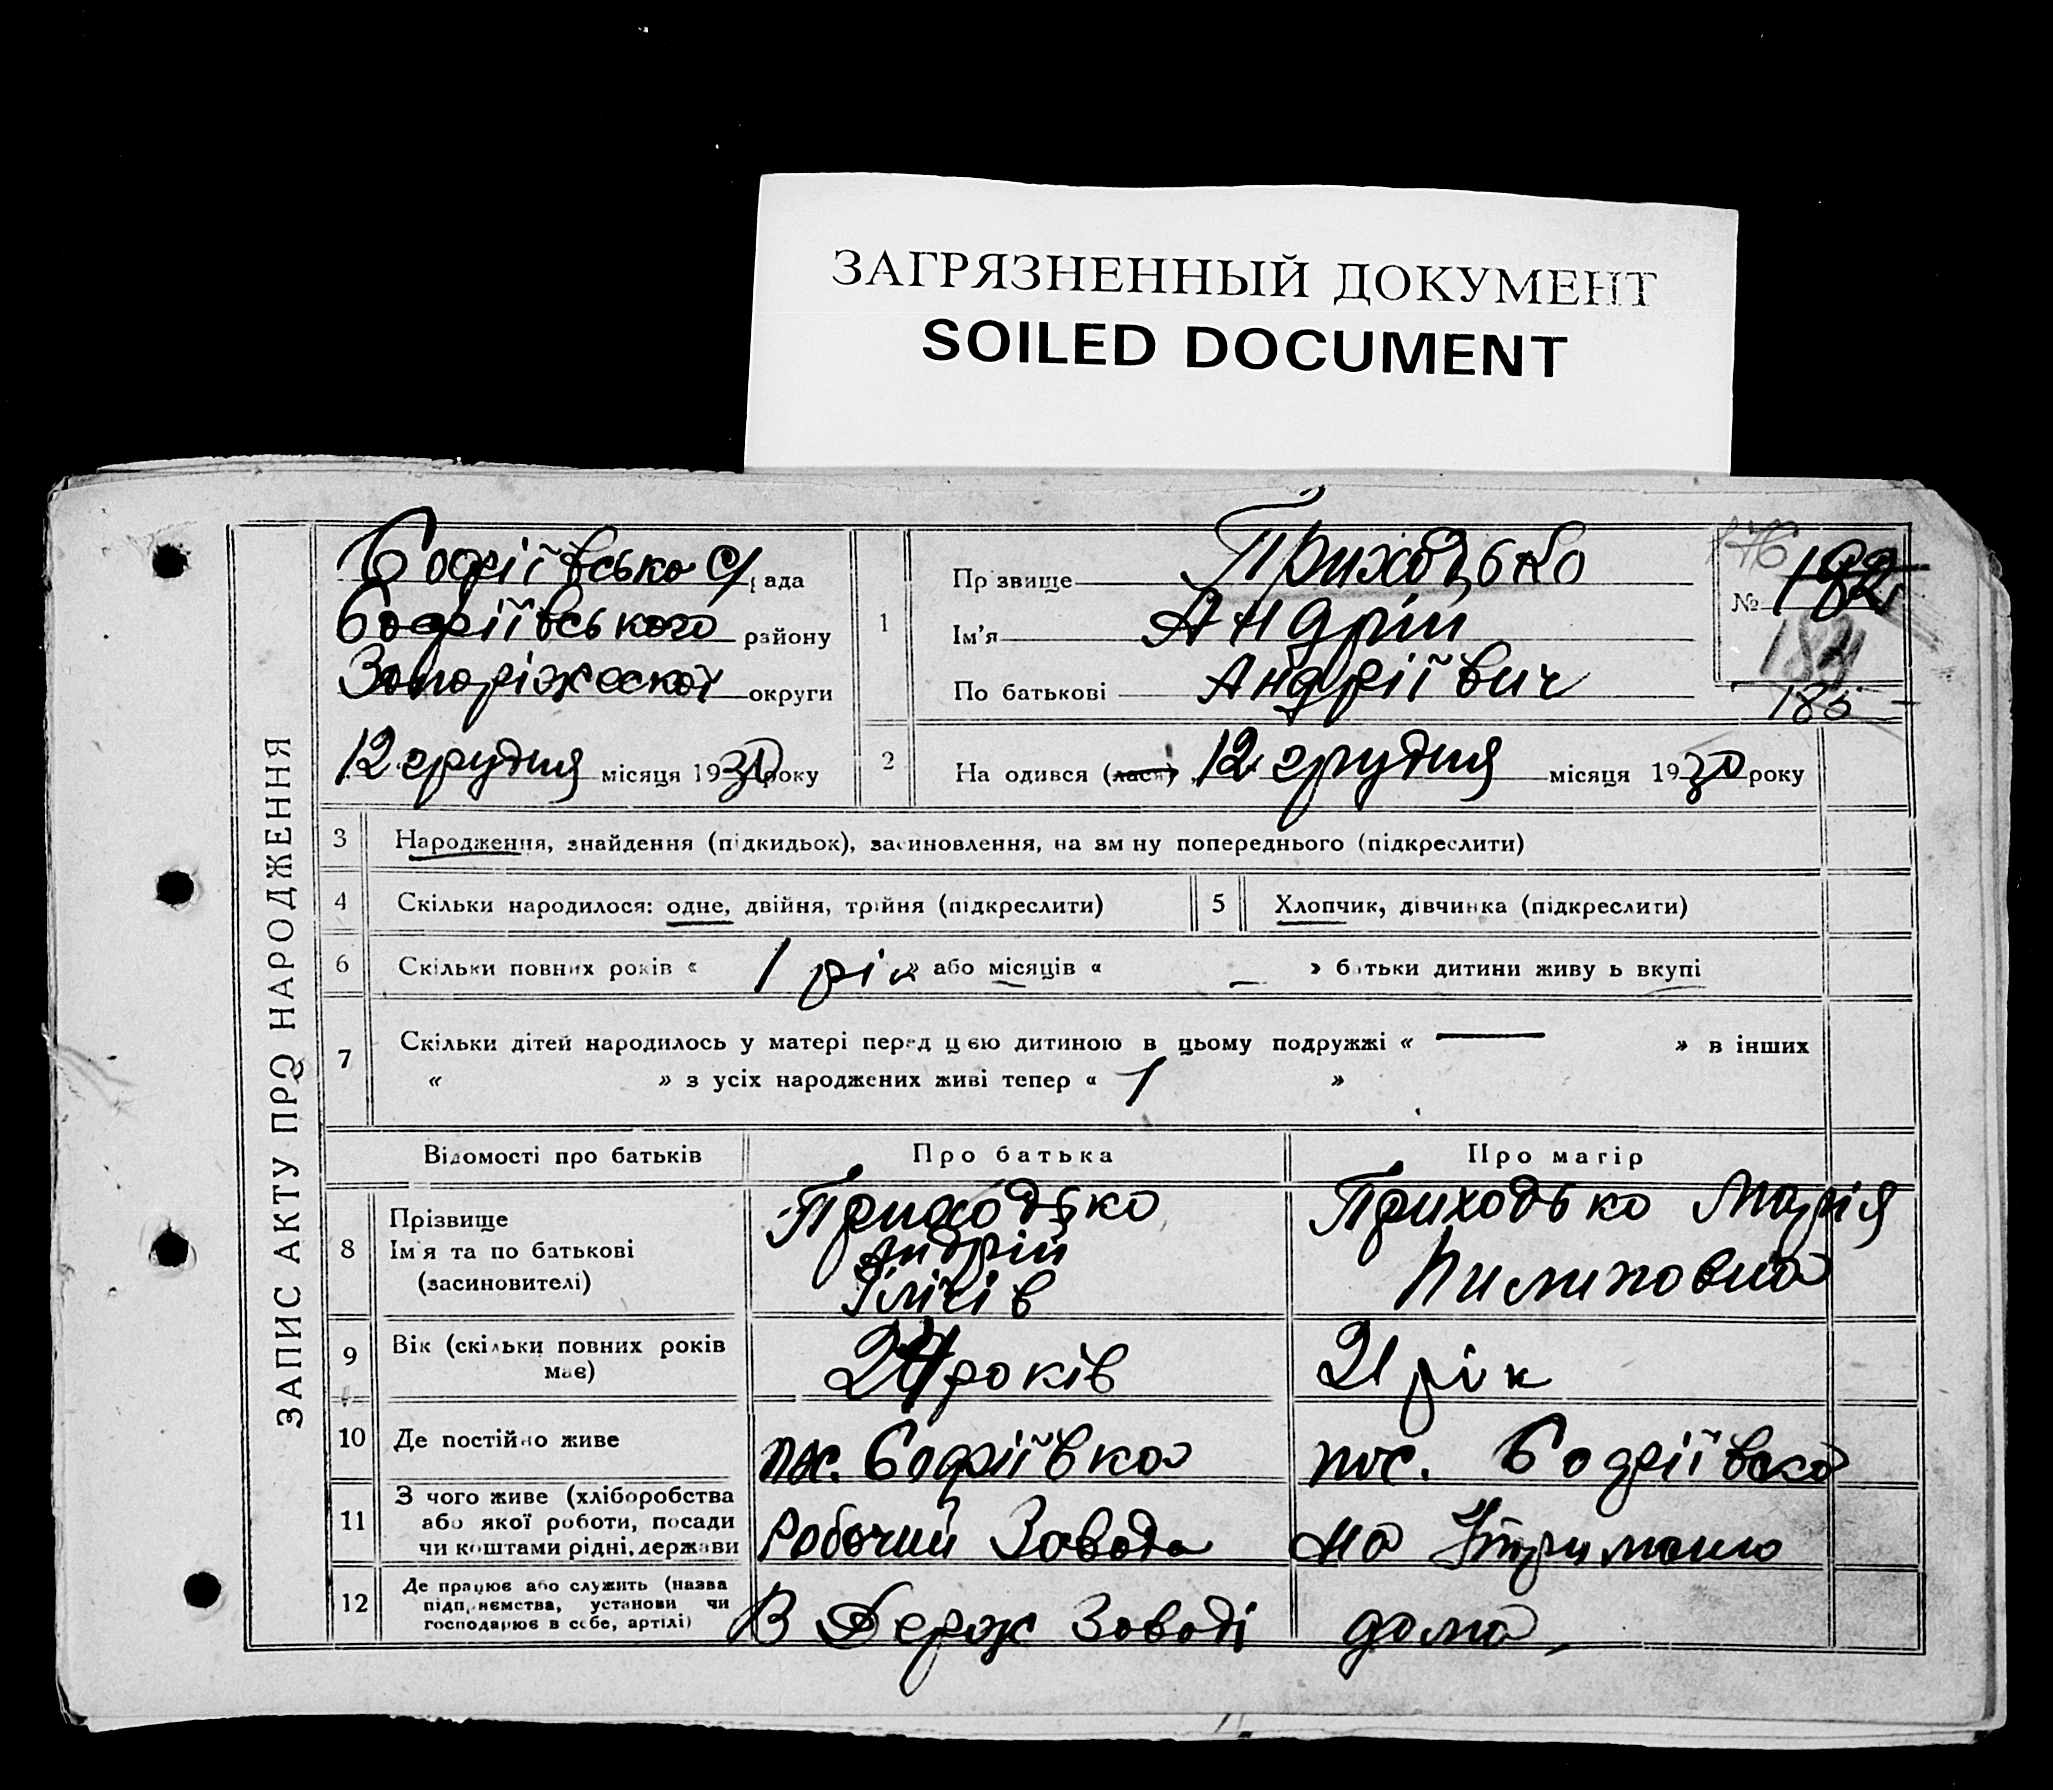 ЗАГРЯЗНЕННЫЙ ДОКУМЕНТ
SOILED DOCUMENT
ЗАПИС АКТУ ПРО НАРОДЖЕННЯ
Софіївсько С/рада
Софіївського району
Запоріжської округи
12 грудня місяця 1930 року
1
Прізвище Приходько
Ім'я Андрій
По батькові Андріївич
№ 182
176
184
185
2
На одився (лася) 12 грудня місяця 1930 року
3 Народження, знайдення (підкидьок), засиновлення, на зм ну попереднього (підкреслити)
4 Скільки народилося: одне, двійня, трійня (підкреслити)
5 Хлопчик, дівчинка (підкреслити)
6 Скільки повних років « 1 рік » або місяців « — » батьки дитини живу ь вкупі
7 Скільки дітей народилось у матері перед цією дитиною в цьому подружжі « — » в інших
« » з усіх народжених живі тепер « 1 »
Відомості про батьків
Про батька
Про матір
8 Прізвище
Ім'я та по батькові
(засиновителі)
Приходько
Андрій
Ілічів
Приходько Марія
Пилиповна
9 Вік (скільки повних років
має)
24 років
21 рік
10 Де постійно живе
пос. Софіївка
пос. Софіївка
11 З чого живе (хліборобства
або якої роботи, посади
чи коштами рідні, держави
Робочий Завода
на Утриманю
12 Де працює або служить (назва
підп, иємства, установи чи
господарює в себе, артілі)
В Держ Заводі
дома